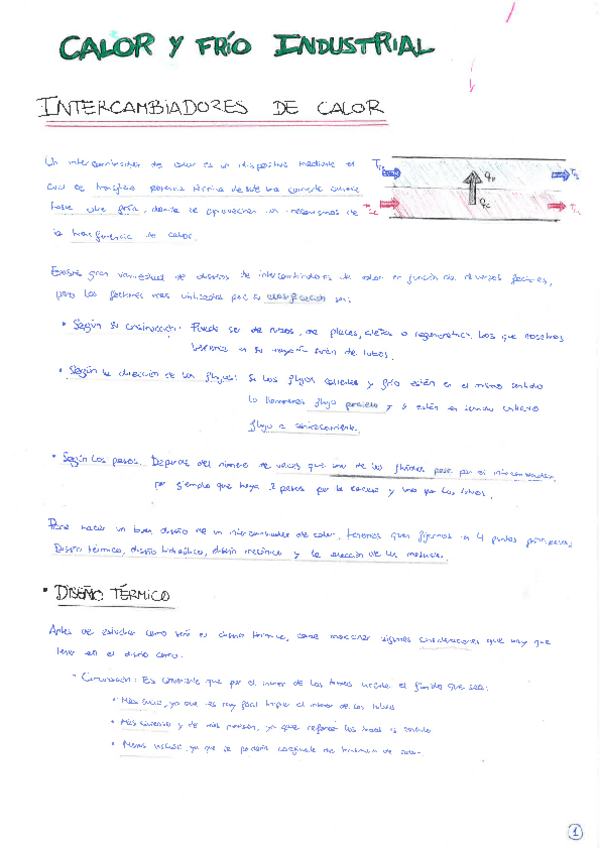 CALOR Y FRÍO INDUSTRIAL
INTERCAMBIADORES DE CALOR
Un intercambiador de calor es un dispositivo mediante el
cual se transfiere potencia térmica desde una corriente
hacia otra fría, donde se aprovechan los mecanismos de
la transferencia de calor.
qF
qC
Existe gran variedad de diseños de intercambiadores de calor en función de diversos factores,
pero los factores más utilizados para su clasificación son:
• Según su construcción: Puede ser de tubos, de placas, aletas o regenerativos. Los que nosotros
en su mayoría serán de tubos.
• Según la dirección de los flujos: Si los flujos calientes y frío están en el mismo sentido
lo llamamos flujo paralelo y si están en sentido contrario
flujo a contracorriente.
• Según los pasos. Depende del número de veces que uno de los fluidos pasa por el intercambiador,
por ejemplo que haya 2 pasos por la carcasa y uno por los tubos.
Para hacer un buen diseño de un intercambiador de calor, tenemos que fijarnos en 4 puntos principales,
Diseño térmico, diseño hidráulico, diseño mecánico y la elección de los materiales.
• DISEÑO TÉRMICO
Antes de estudiar como será el diseño térmico, cabe mencionar algunas consideraciones que hay que
tener en el diseño como:
• Es conveniente que por el interior de los tubos circule el fluido que sea:
• Más sucio, ya que es muy fácil limpiar el interior de los tubos
• Más corrosivo y de más presión, ya que reforzar los tubos es sencillo
• Menos viscoso, ya que se podría
1